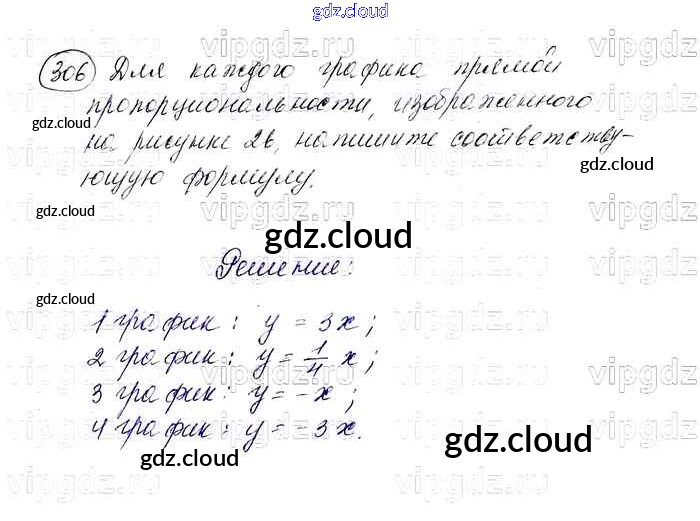 gdz.cloud
306 Для каждого графика прямой
пропорциональности, изображенного
gdz.cloud
на рисунке 26, напишите соответству-
gdz.cloud
ющую формулу.
gdz.cloud
gdz.cloud
Решение:
gdz.cloud
1 график: y = 3x;
2 график: y = 1/4 x;
3 график: y = -x;
4 график: y = -3x.
gdz.cloud
gdz.cloud
vipgdz